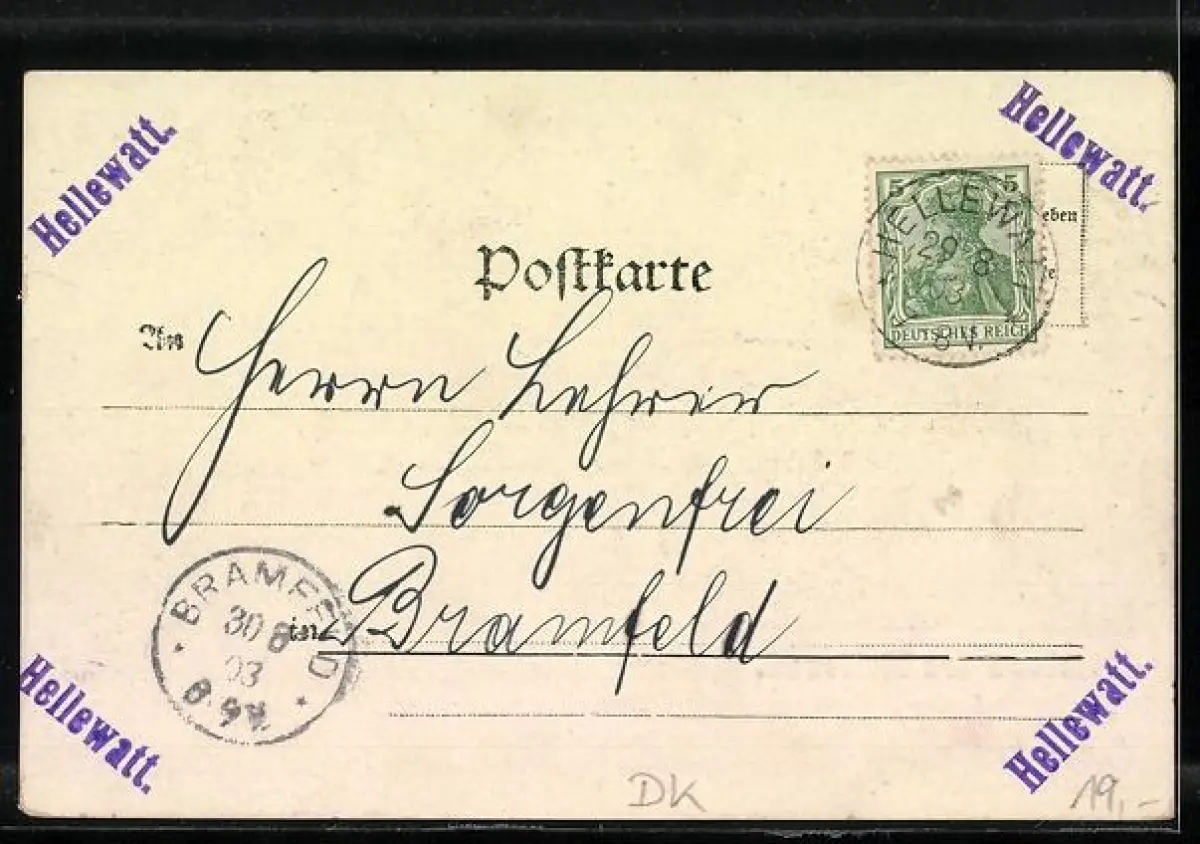 Hellewatt.
Hellewatt.
5 5
HELLEWATT
29 8
03
8 V.
DEUTSCHES REICH
eben
Postkarte
An
Herrn Lehrer
Sorgenfrei
in Bramfeld
BRAMFELD
30 8
03
8-9V.
Hellewatt.
Hellewatt.
DK
19,-